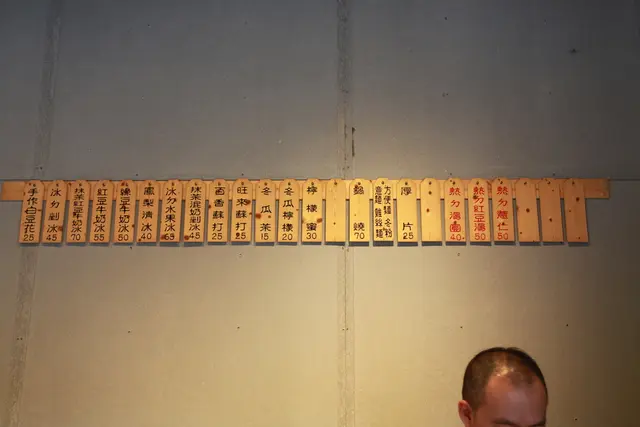 手作白豆花 25
冰勻剉冰 45
抹茶紅豆牛奶冰 70
紅豆牛奶冰 55
煉豆牛奶冰 50
鳳梨清冰 40
冰勻水果冰 65
抹茶泥奶剉冰 45
百香蘇打 25
旺來蘇打 25
冬瓜茶 15
冬瓜檸檬 20
檸檬蜜 30
鍋燒 70
方便麵 冬粉
意麵 雞絲麵
厚片 25
熱勻湯圓 40
熱勻紅豆湯 50
熱勻薏仁 50